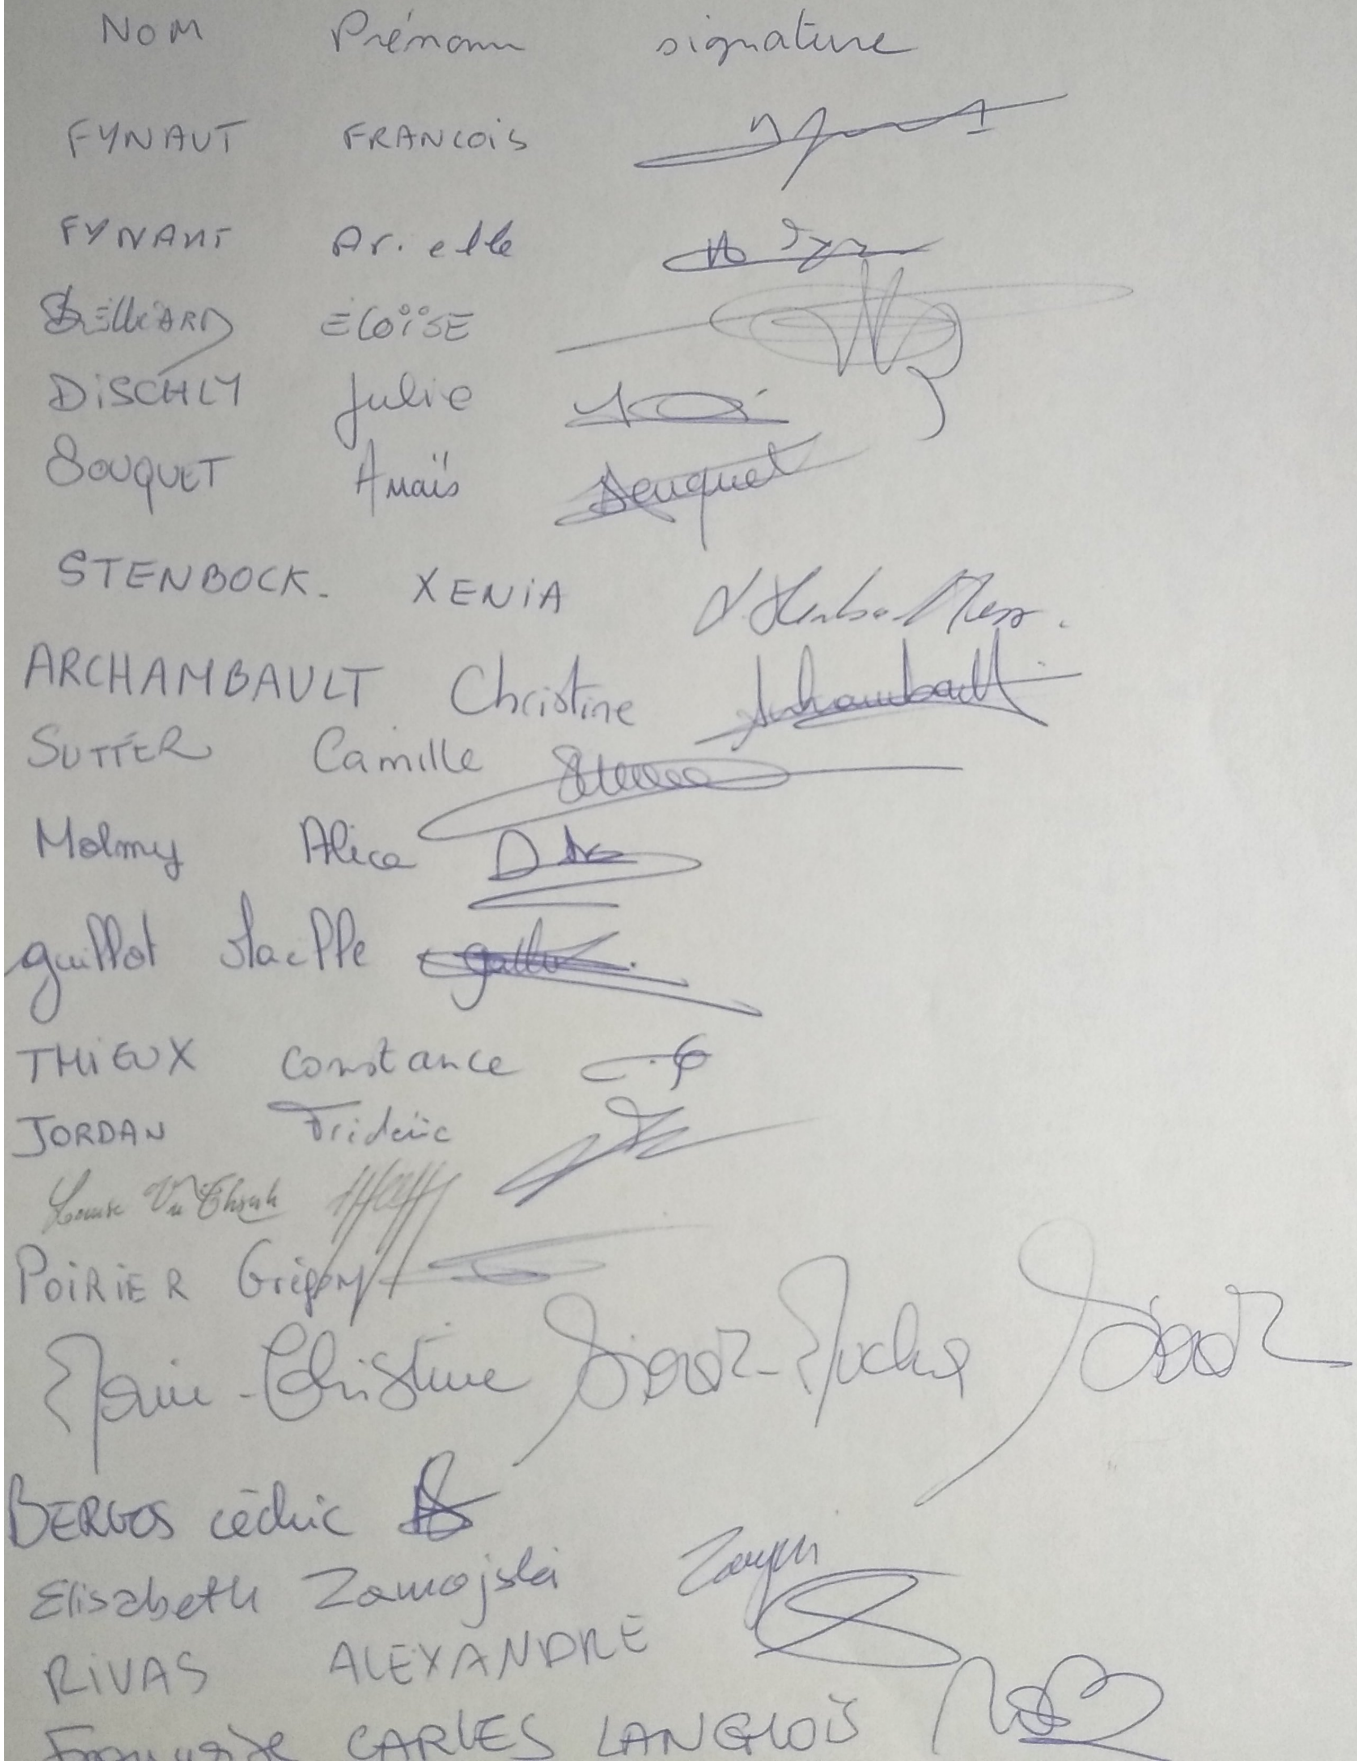 NOM Prénom signature
FYNAUT FRANCOIS
FYNAUT Arielle
ELOÏSE
DISCHLY Julie
BOUQUET Anaïs Bouquet
STENBOCK. XENIA
ARCHAMBAULT Christine Archambault
SUTTER Camille
Molmy Alice
guillot Maelle
THIEUX Constance
JORDAN Frédéric
Louise
POIRIER Grégory
Marie-Christine
BERGOS cédric
Elisabeth Zamojski
RIVAS ALEXANDRE
Françoise CARLES LANGLOIS